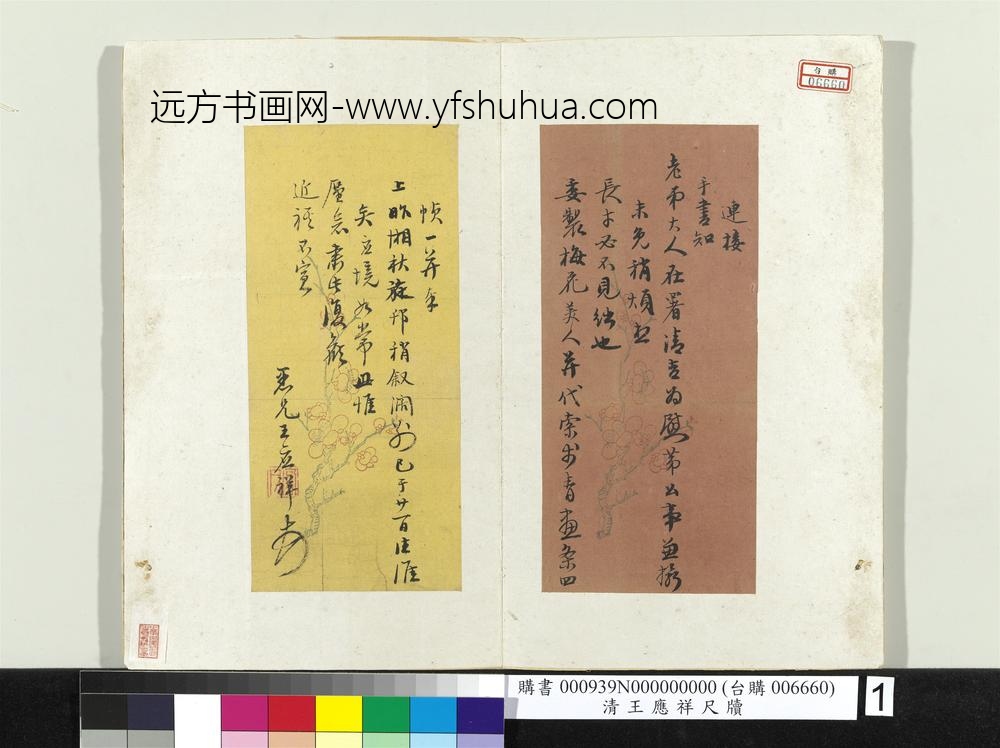 远方书画网-www.yfshuhua.com
台購
06660
連接
手書知
老弟大人在署清吉為慰第公事並擾
未免稍煩然
長才必不見絀也
委製梅花美人并代索少青畫条四
幀一并奉
上昨湘秋旋邗稍叙闊別已于廿一日往淮
矣立境如常毋惟
厪念肅此復頌
近祺不宣
愚兄王應祥
購書 000939N000000000 (台購 006660)
清 王 應 祥 尺 牘
1